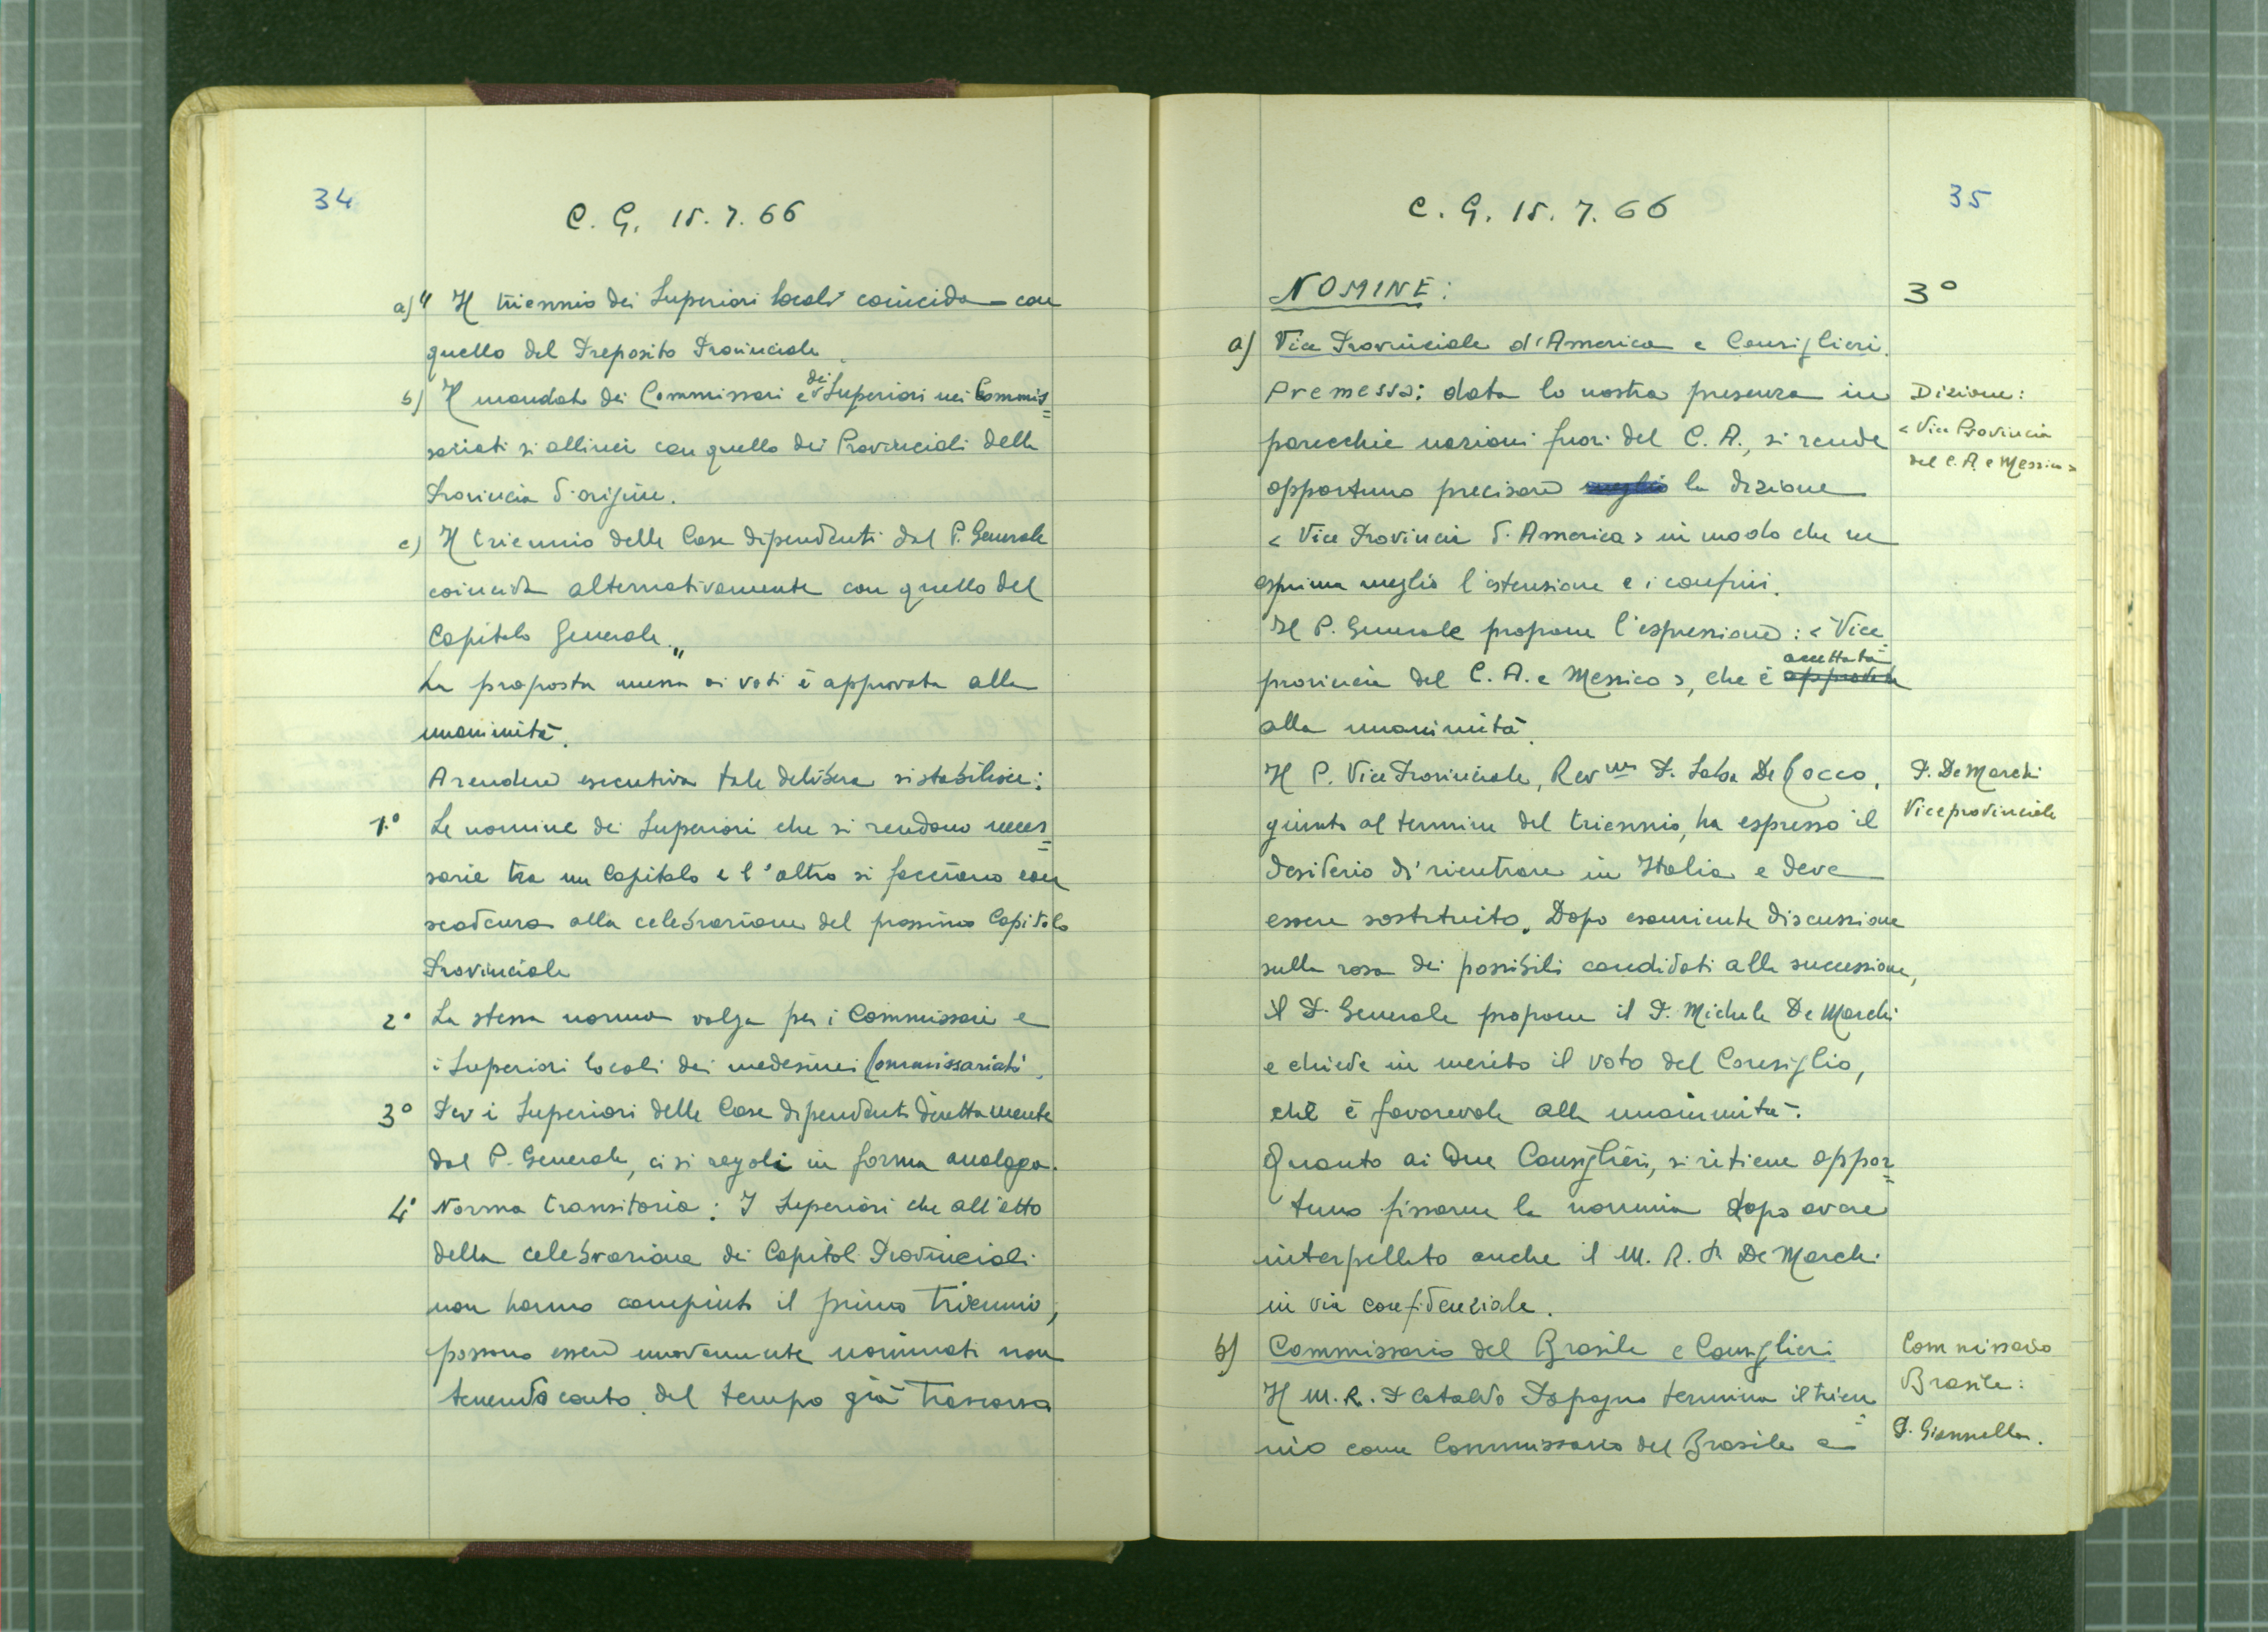 34
C. G. 15. 7. 66
a) " Il triennio dei Superiori locali coincida con
quello del Preposito Provinciale.
b) Il mandato dei Commissari e dei Superiori nei Commis=
sariati si allinei con quello dei Provinciali della
Provincia d'origine.
c) Il triennio delle Case dipendenti dal P. Generale
coincida alternativamente con quello del
Capitolo Generale."
La proposta messa ai voti è approvata alla
unanimità.
A rendere esecutiva tale delibera si stabilisce:
1.° Le nomine dei Superiori che si rendono neces=
sarie tra un Capitolo e l'altro si facciano con
scadenza alla celebrazione del prossimo Capitolo
Provinciale
2° La stessa norma valga per i Commissari e
i Superiori locali dei medesimi Commissariati.
3° Per i Superiori delle Case dipendenti direttamente
dal P. Generale, ci si regoli in forma analoga.
4° Norma transitoria: I Superiori che all'atto
della celebrazione dei Capitoli Provinciali
non hanno compiuto il primo triennio,
possono essere nuovamente nominati non
tenendo conto del tempo già trascorso
35
C. G. 15. 7. 66
NOMINE: 3°
a) Vice Provinciale d'America e Consiglieri.
Premessa: data la nostra presenza in
parecchie nazioni fuori del C. A., si rende
opportuno precisare meglio la dizione
< Vice Provincia d'America > in modo che ne
esprima meglio l'estensione e i confini.
Il P. Generale propone l'espressione: < Vice
provincia del C. A. e Messico >, che è approvata accettata
alla unanimità.
Il P. Vice Provinciale, Rev.mo P. Saba De Rocco,
giunto al termine del triennio, ha espresso il
desiderio di rientrare in Italia e deve
essere sostituito. Dopo esauriente discussione
sulla rosa dei possibili candidati alla successione,
il P. Generale propone il P. Michele De Marchi
e chiede in merito il voto del Consiglio,
che è favorevole alla unanimità.
Quanto ai due Consiglieri, si ritiene oppor=
tuno fissarne la nomina dopo avere
interpellato anche il M. R. P. De Marchi
in via confidenziale.
b) Commissario del Brasile e Consiglieri
Il M. R. P. Cataldo Papagno termina il trien=
nio come Commissario del Brasile e
Dizione:
< Vice Provincia
del C. A. e Messico >
P. De Marchi
Viceprovinciale
Commissario
Brasile:
P. Giannella.